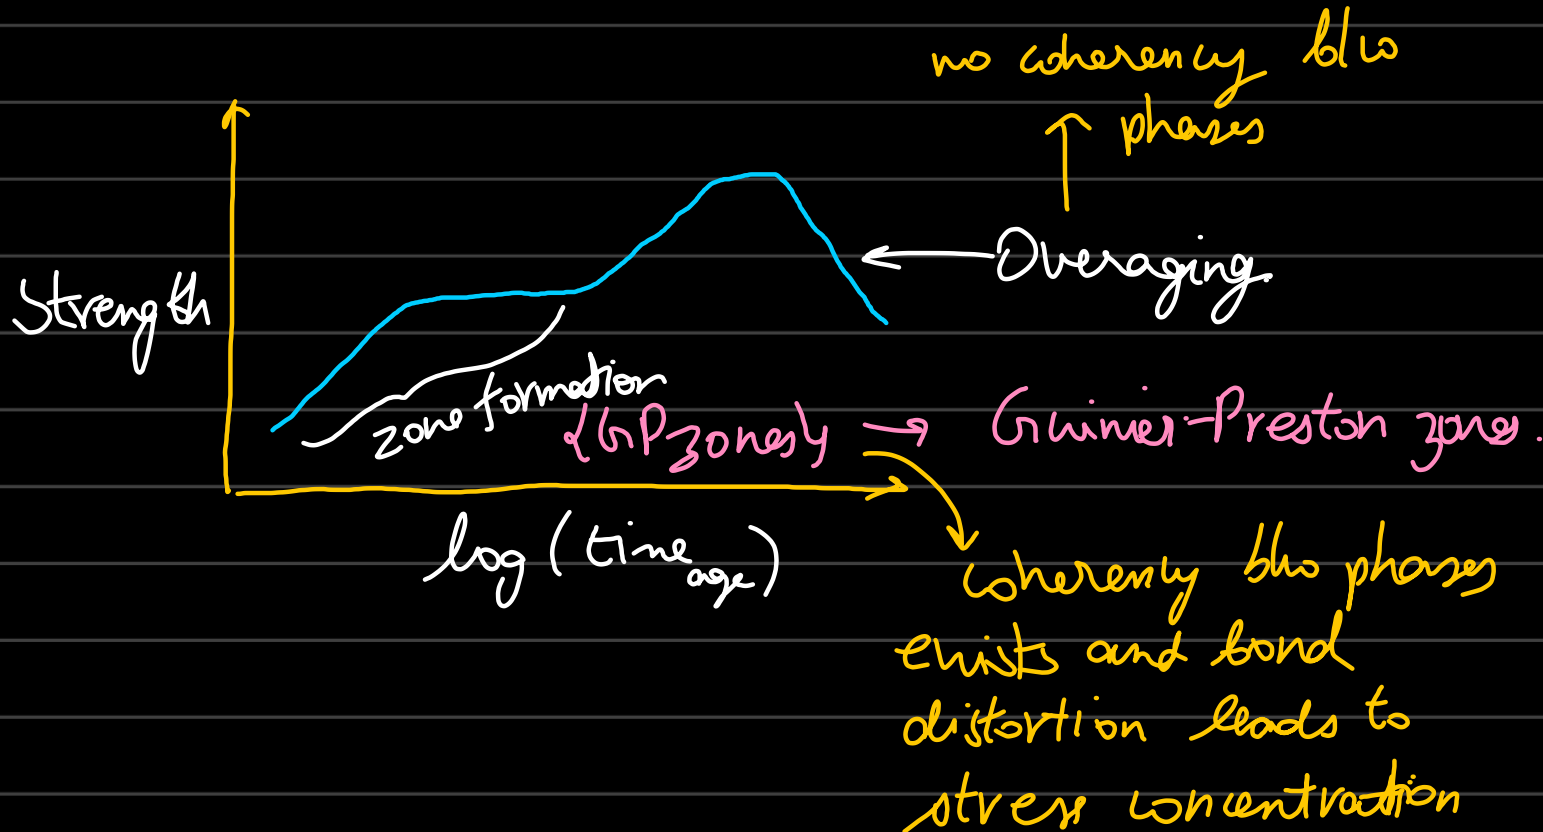 no coherency b/w
phases
Strength
Overaging
zone formation
{GP zones} → Guinier-Preston zones.
log (time age)
coherency b/w phases
exists and bond
distortion leads to
stress concentration